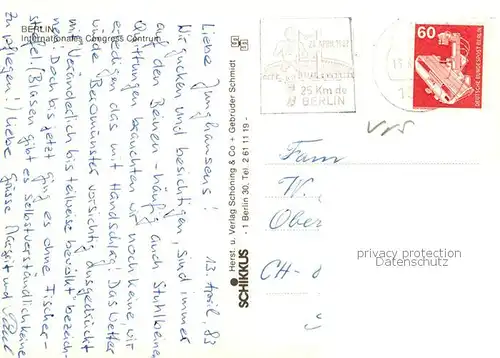 BERLIN
Internationales Congress Centrum
13. April, 83
Liebe Junghansens!
Wir gucken und besichtigen, sind immer
auf den Beinen - häufig auch Stuhlbeinen
Quittungen brauchten wir noch keine, wir
erledigen das mit Handschlag! Das Wetter
würde Beromünster vorsichtig ausgedrückt
mit "Veränderlich bis teilweise bewölkt" bezeich-
nen! Doch bis jetzt ging es ohne Fischer-
stiefel. Blasen gibt es selbstverständlich keine
zu pflegen! Liebe Grüsse Margrit und
SCHIKKUS
Herst. u. Verlag Schöning & Co + Gebrüder Schmidt
- 1 Berlin 30, Tel. 2 61 11 19 -
25 Km de
BERLIN
60
DEUTSCHE BUNDESPOST BERLIN
Fam
W.
Ober
CH-
privacy protection
Datenschutz